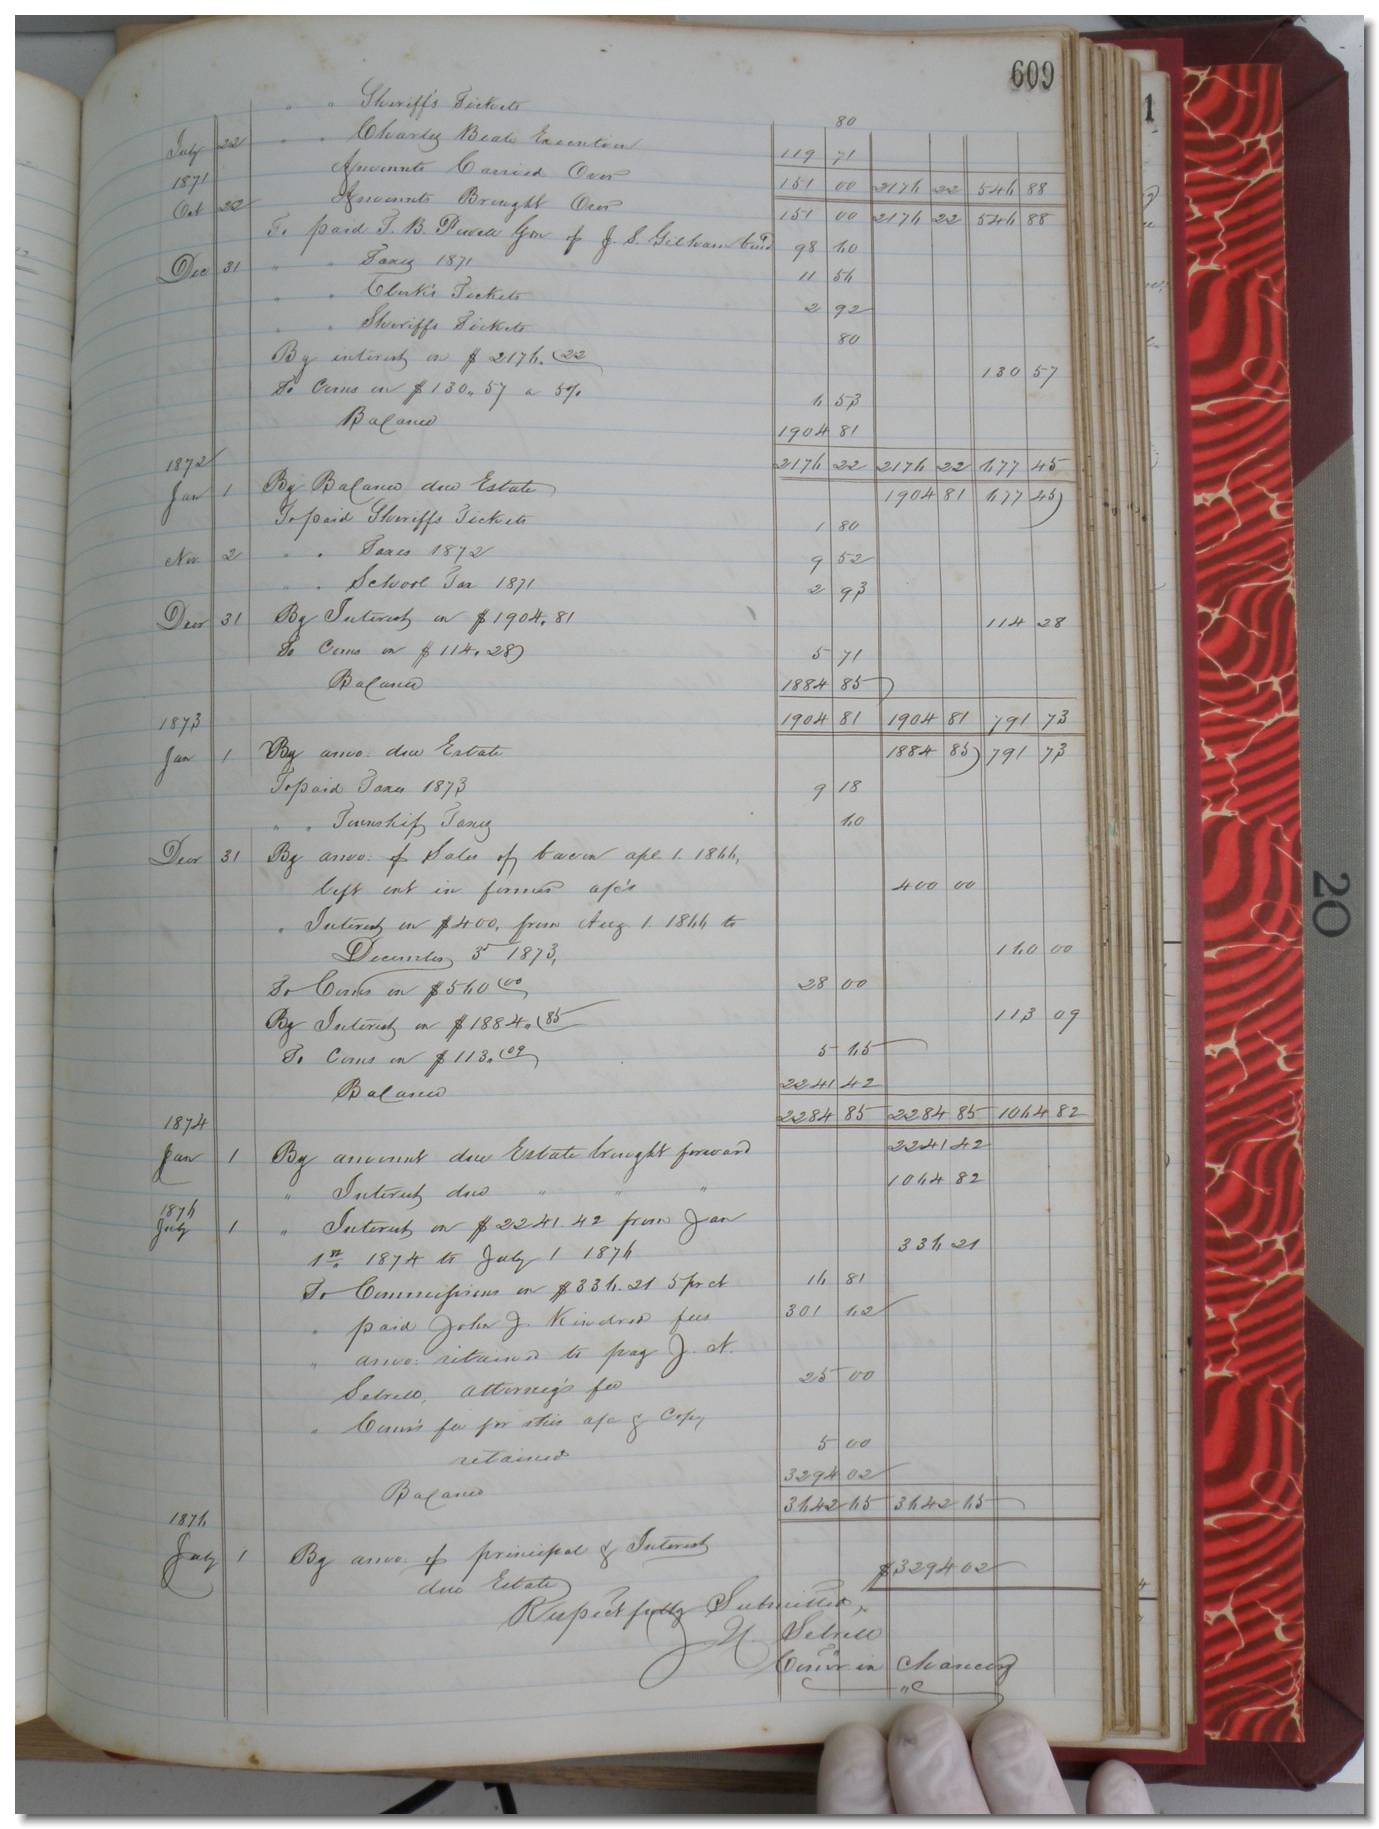 609
" " Sheriff's Tickets 80
July 22 " " Charley Beals Execution 119 71
1871 Amounts Carried Over 151 00 2176 22 546 88
Oct 22 Amounts Brought Over 151 00 2176 22 546 88
To paid T. B. Gdn of J. S. Gilliam 98 60
Dec 31 " " Taxes 1871 11 56
" " Clerk's Tickets 2 92
" " Sheriffs Tickets 80
By interest on $2176.22 130 57
To Coms on $130.57 a 5% 6 53
Balance 1904 81
1872 2176 22 2176 22 677 45
Jan 1 By Balance due Estate 1904 81 677 45
To paid Sheriffs Tickets 1 80
Nov. 2 " " Taxes 1872 9 52
" " School Tax 1871 2 93
Decr 31 By Interest on $1904.81 114 28
To Coms on $114.28 5 71
Balance 1884 85
1873 1904 81 1904 81 791 73
Jan 1 By amo. due Estate 1884 85 791 73
To paid Taxes 1873 9 18
" " Township Taxes 60
Decr 31 By amo. of Sales of bacon apl 1. 1866,
left out in former a/c's 400 00
" Interest on $400, from Aug 1. 1866 to
December 3 1873, 160 00
To Coms on $560 00 28 00
By Interest on $1884.85 113 09
To Coms on $113.09 5 65
Balance 2241 42
1874 2284 85 2284 85 1064 82
Jan 1 By amount due Estate brought forward 2241 42
" Interest due " " " 1064 82
1876
July 1 " Interest on $2241.42 from Jan
1st 1874 to July 1 1876 336 21
To Commissions on $336.21 5 pr ct 16 81
" paid John J. Kindred fees 301 62
" amo. retained to pay J. N.
Sebrell, attorney's fee 25 00
" Comr's fee for this a/c & Copy
retained 5 00
Balance 3294 02
1876 3642 45 3642 45
July 1 By amo. of principal & Interest
due Estate $3294 02
Respectfully Submitted,
N. Sebrell
Comr in Chancery
20